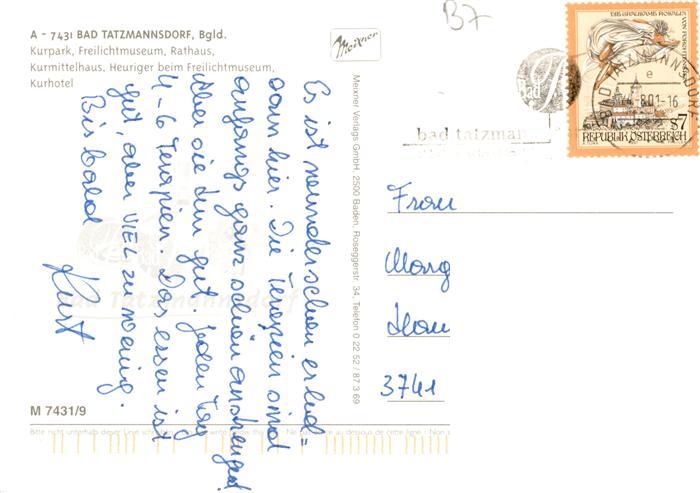 A - 7431 BAD TATZMANNSDORF, Bgld.
Kurpark, Freilichtmuseum, Rathaus,
Kurmittelhaus, Heuriger beim Freilichtmuseum,
Kurhotel
Meixner
B7
DIE GRAUSAME ROSALIA VON FORCHTENSTEIN
S7
REPUBLIK ÖSTERREICH
BAD TATZMANNSDORF
e
8.01-16
Bad
bad tatzman
Es ist wunderschön erhol=
sam hier. Die Terapien sind
anfangs ganz schön anstrengend
aber sie tun gut. Jeden Tag
4-6 Terapien. Das essen ist
gut, aber VIEL zu wenig.
Bis bald
Meixner Verlags GmbH, 2500 Baden, Roseggerstr. 34, Telefon 0 22 52 / 87 3 69
Frau
3741
Bad Tatzmannsdorf
M 7431/9
Bitte nicht unterhalb dieser Linie
Ne pas écrire au dessous de cette ligne